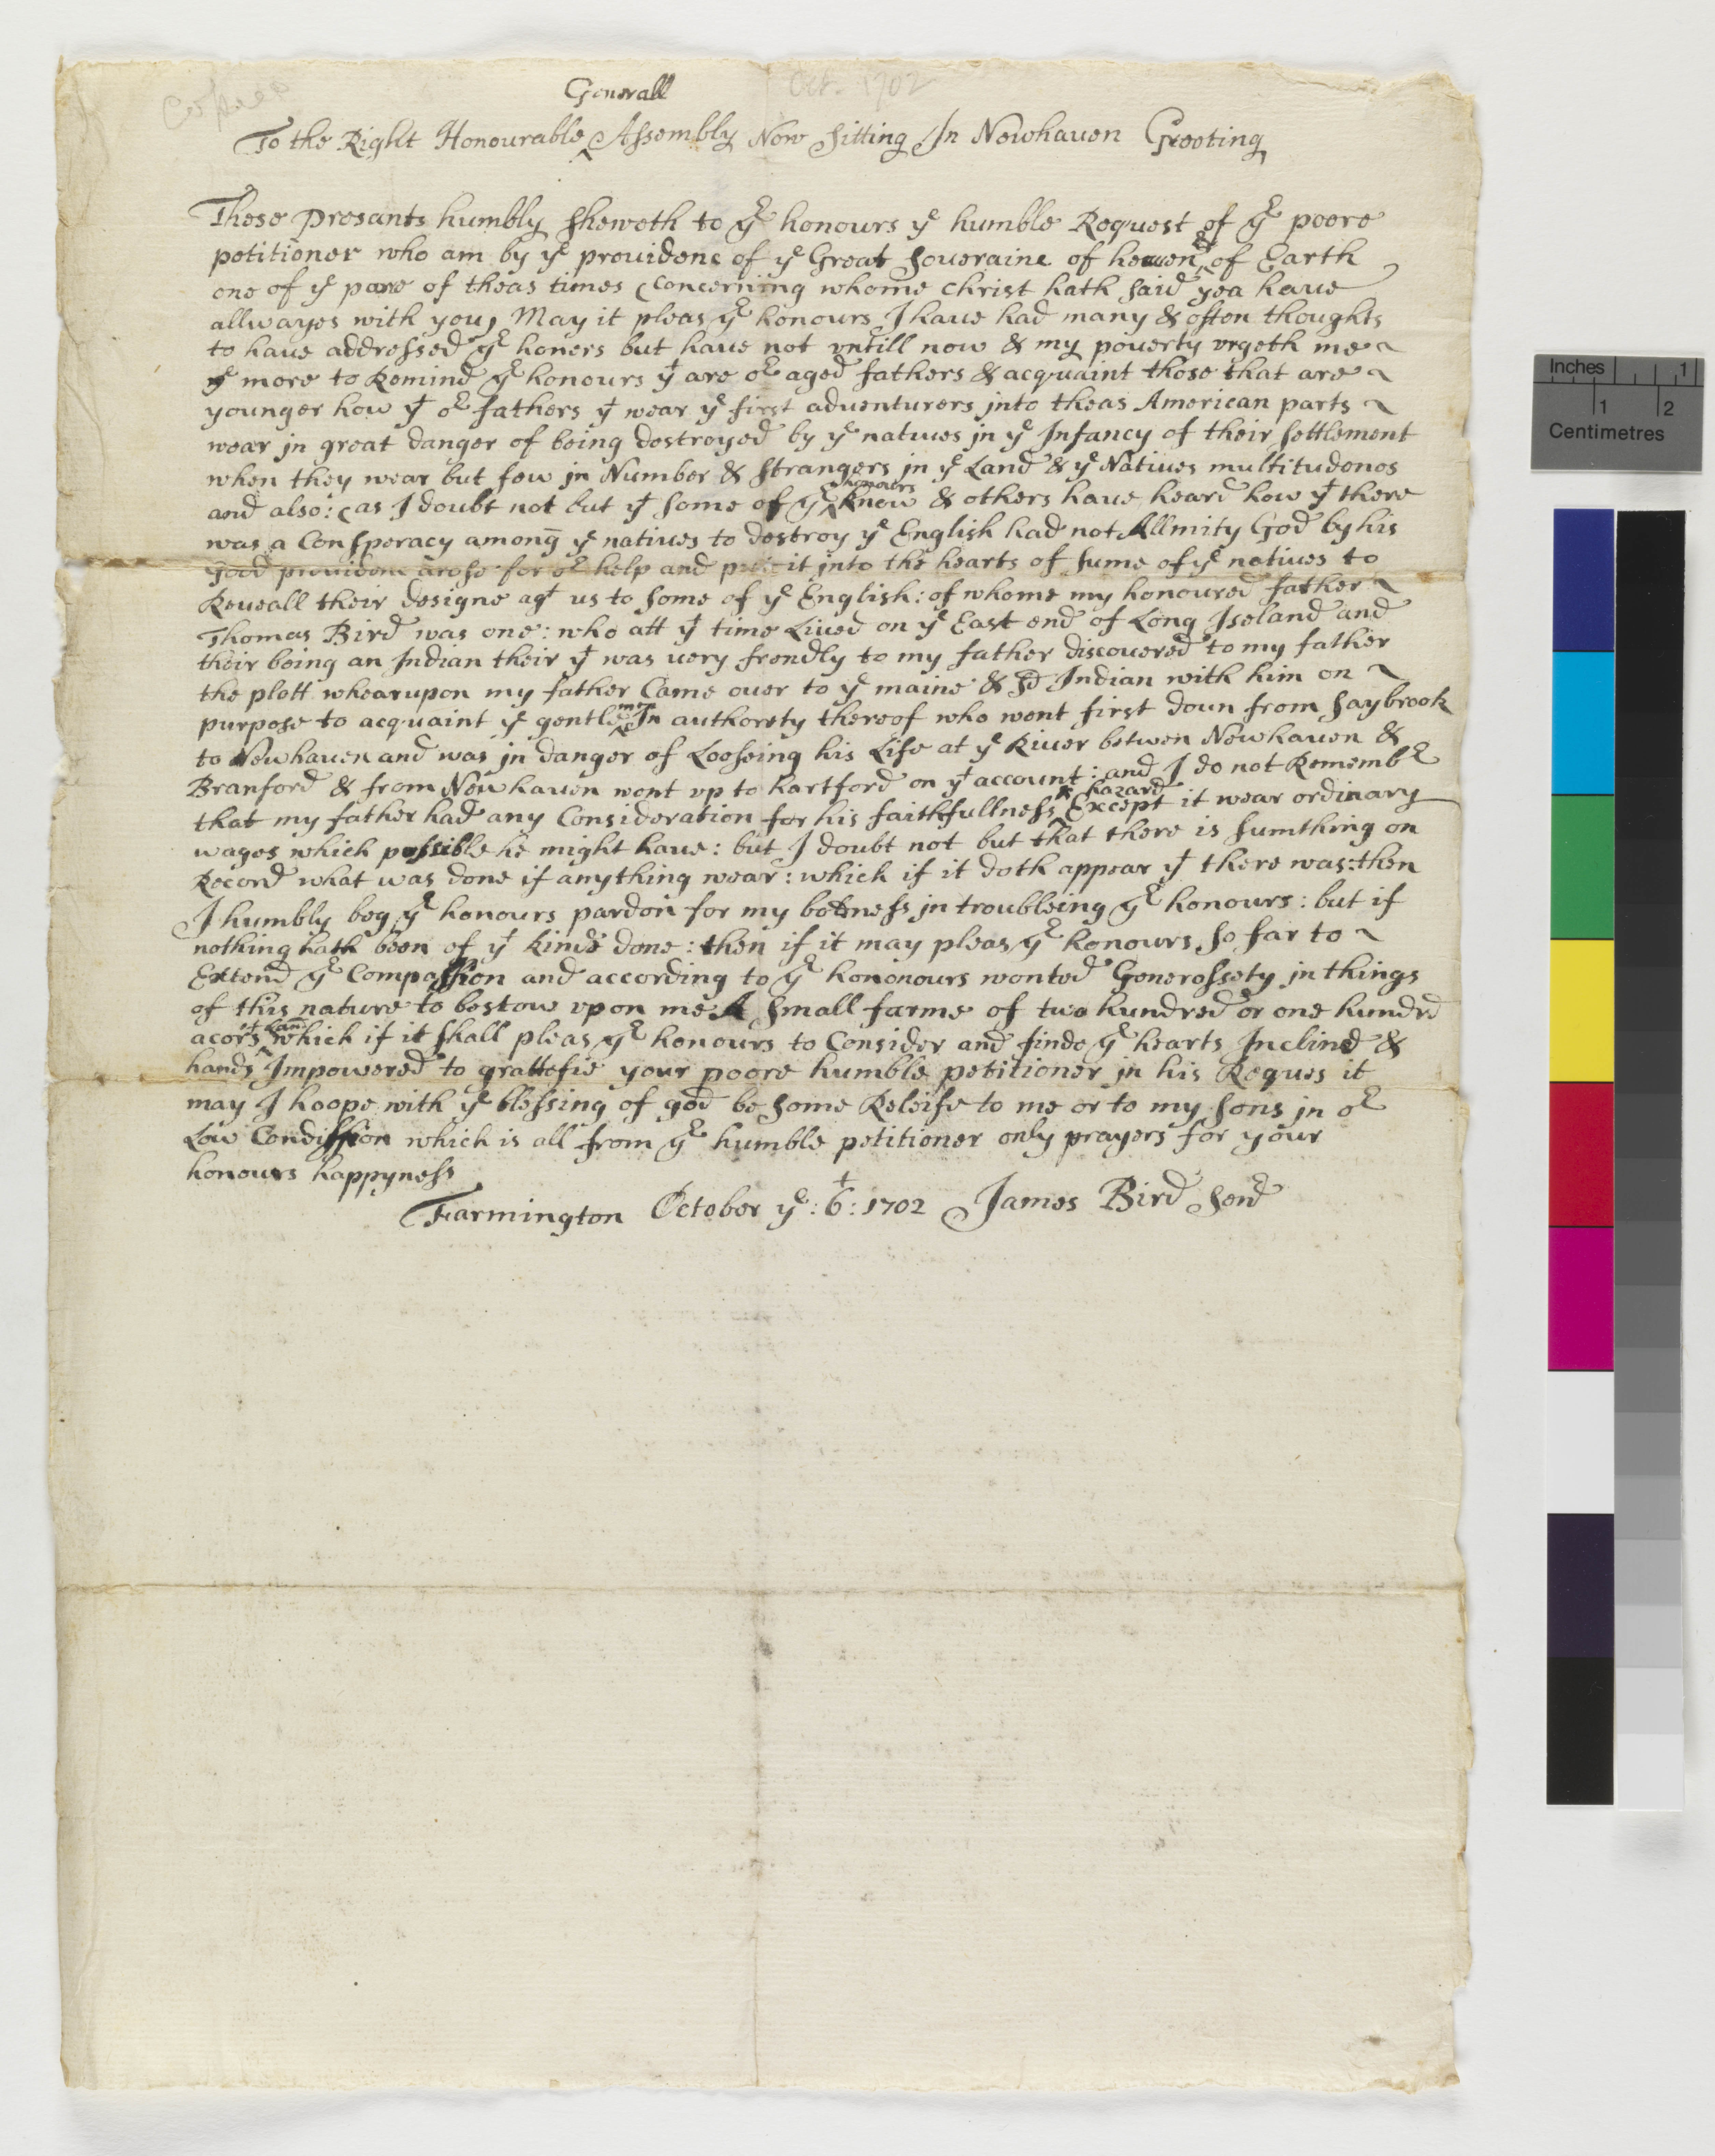 Copied
Oct. 1702
Generall
To the Right Honourable ^ Assembly Now Sitting In Newhaven Greeting
These presants humbly sheweth to yr honours ye humble Request of yr poore
petitioner who am by ye providenc of ye Great Soveraine of heaven ^ & of Earth
one of ye pore of theas times (concerning whome Christ hath said yea have
allwayes with you) May it pleas yr honours I have had many & often thoughts
to have addressed yr honers but have not vntill now & my poverty vrgeth me ~
ye more to Remind yr honours yt are or aged fathers & acquaint those that are ~
younger how yt or fathers yt wear ye first adventurers into theas American parts ~
wear in great danger of being destroyed by ye natives in ye Infancy of their settlement
when they wear but few in Number & strangers in ye Land & ye Natives multitudenos
and also: (as I doubt not but yt some of yr ^ honours know & others have heard how yt there
was a Consperacy among ye natives to destroy ye English had not Allmity God by his
good providenc arose for or help and put it into the hearts of sume of ye natives to
Reveall their designe agt us to some of ye English: of whome my honoured father ~
Thomas Bird was one: who att yt time Lived on ye East end of Long Iseland and
their being an Indian their yt was very frendly to my father discovered to my father
the plott whearupon my father Came over to ye maine & sd Indian with him on ~
purpose to acquaint ye gentle ^ men In authorety thereof who went first doun from Saybrook
to Newhaven and was in danger of Looseing his Life at ye River betwen Newhaven &
Branford & from Newhaven went vp to hartford on yt account: and I do not Remembr
that my father had any Consideration for his faithfullness ^ & hazard Except it wear ordinary
wages which possible he might have: but I doubt not but that there is sumthing on
Record what was done if anything wear: which if it doth appear yt there was: then
I humbly beg yr honours pardon for my bolness in troubleing yr honours: but if
nothing hath been of yt kinde done: then if it may pleas yr honours so far to ~
Extend yr Compassion and according to yr hononours wonted Generossety in things
of this nature to bestow vpon me A small farme of two hundred or one hundrd
acors ^ of Land which if it shall pleas yr honours to Consider and finde yr hearts Inclined &
hands Impowered to grattefie your poore humble petitioner in his Reques it
may I hoope with ye blessing of god be some Releife to me or to my sons in or
Low Condission which is all from yr humble petitioner only prayers for your
honours happyness
Farmington October ye: 6t: 1702 James Bird Senr
Inches 1
1 2
Centimetres